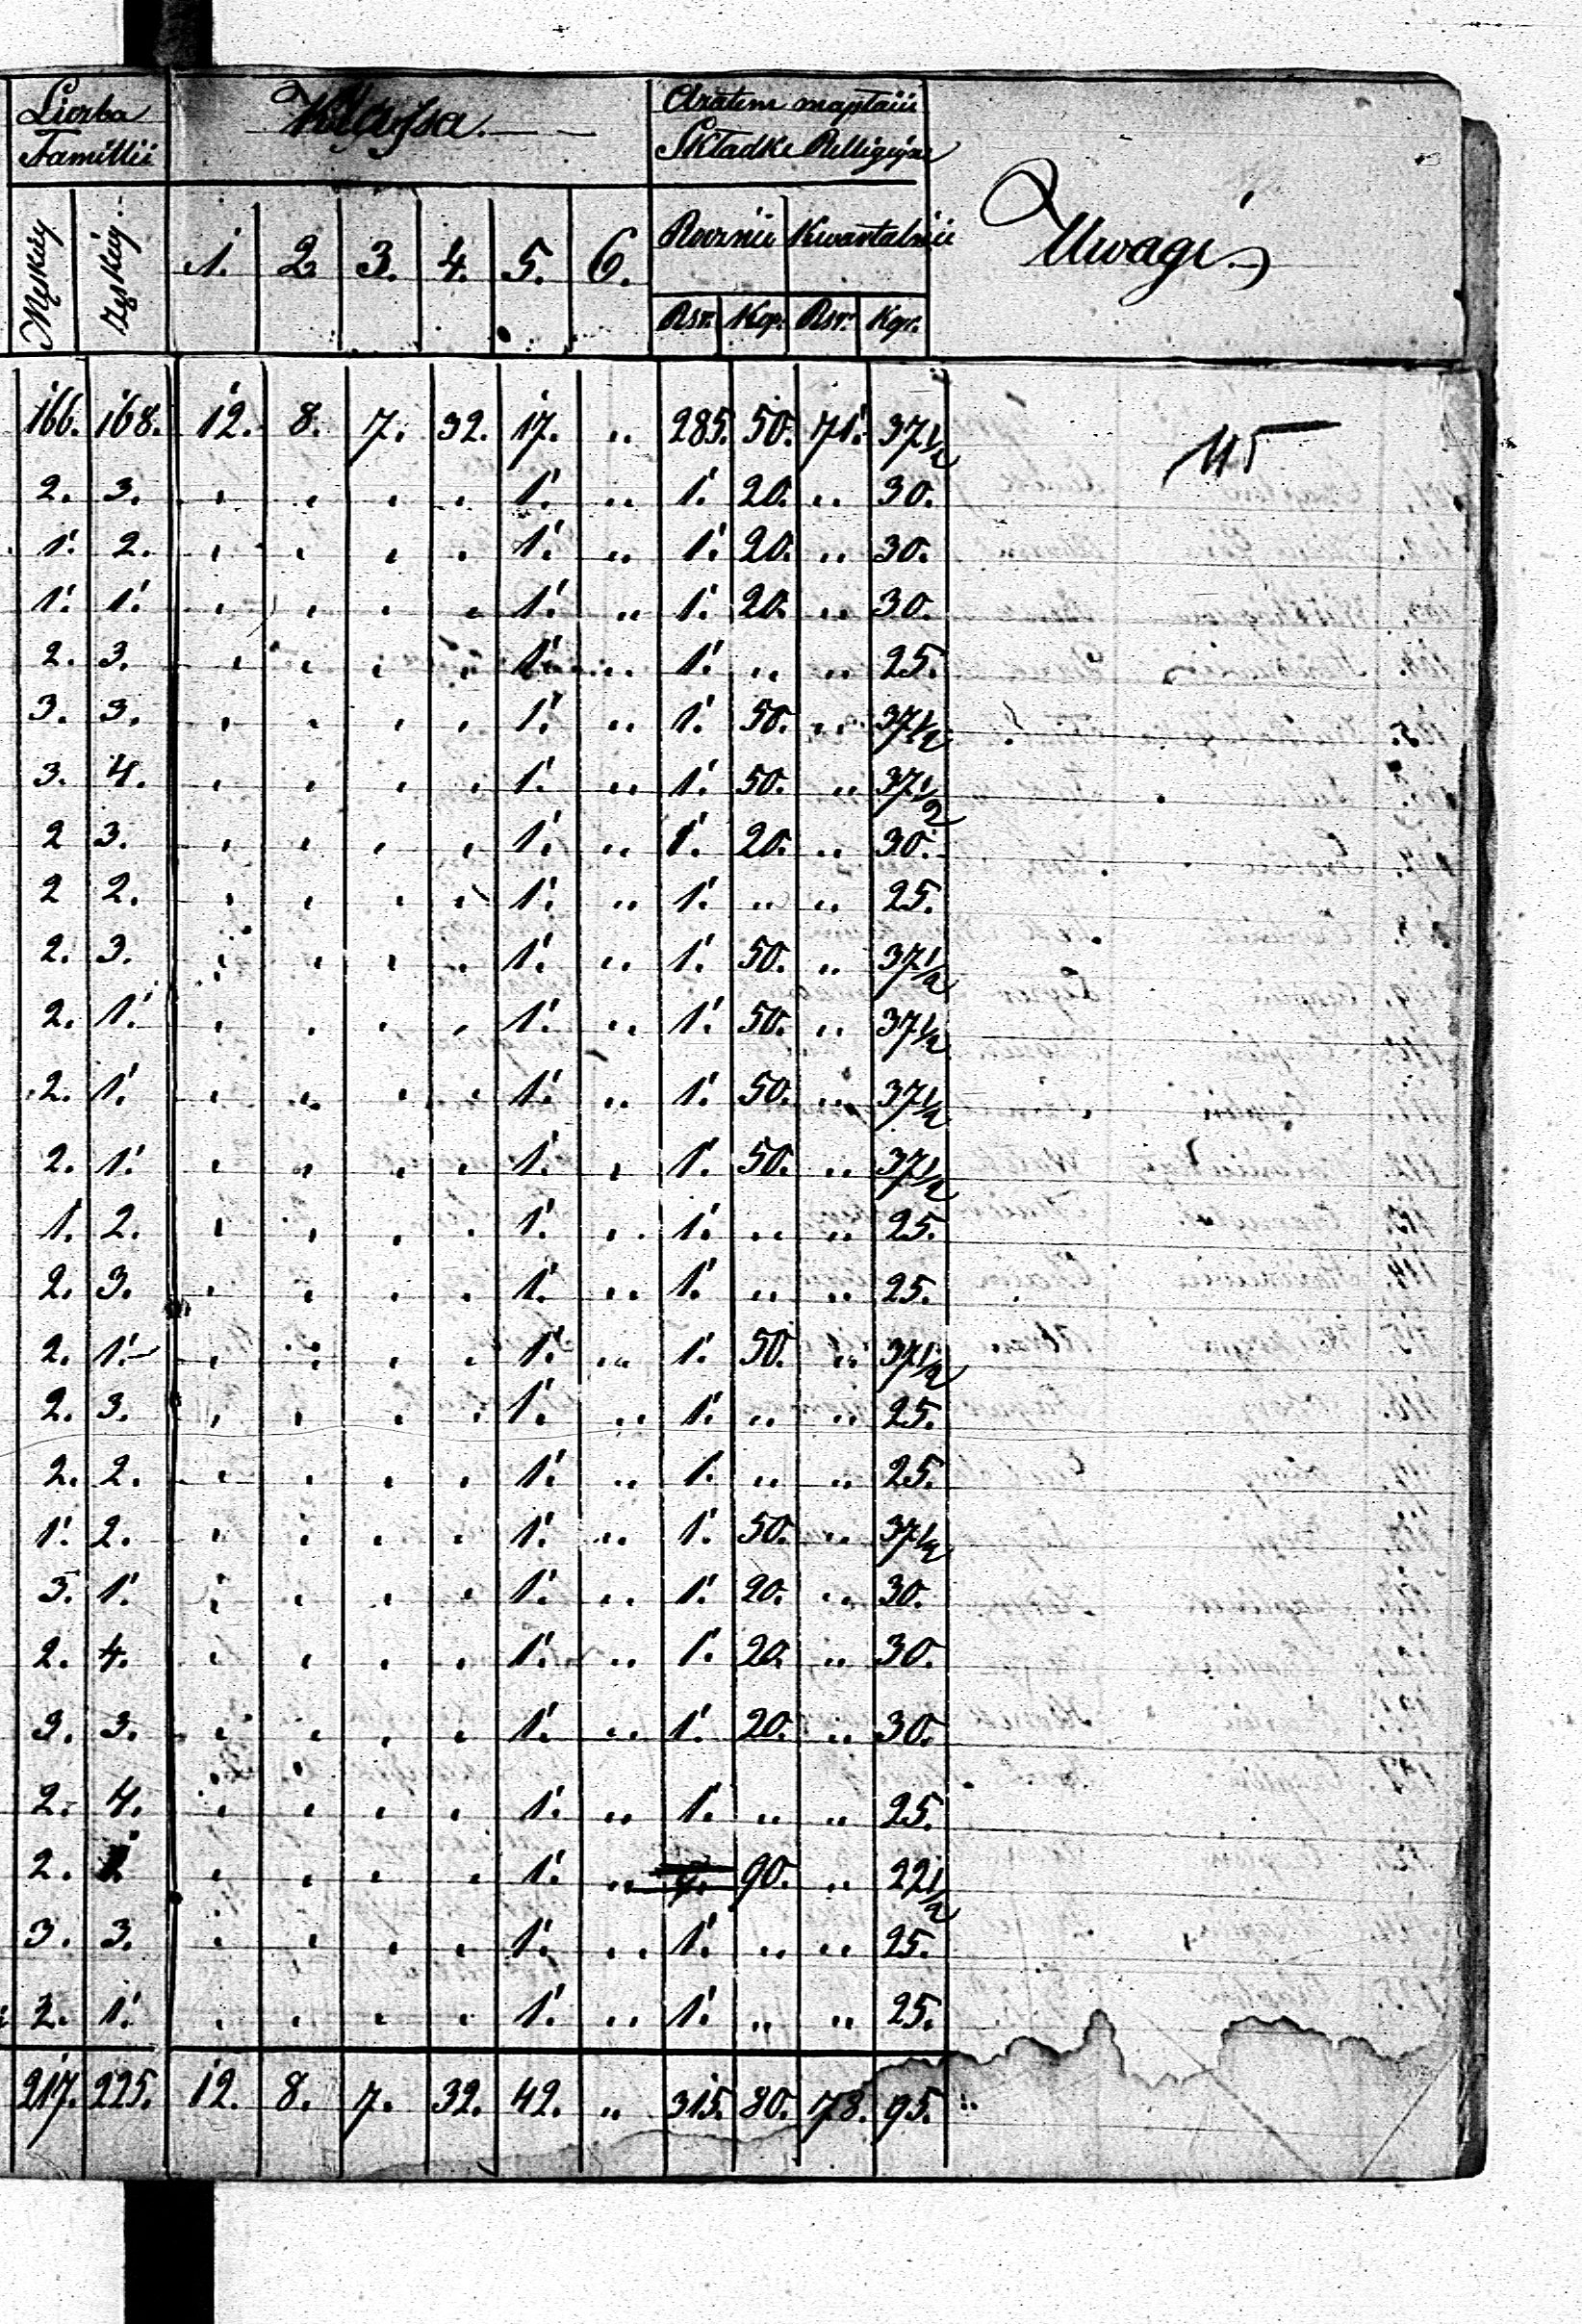 Liczba Klassa. Razem zapłacił
Famillii Składki Relligijne
Męskiéy Żęskiéy 1. 2 3. 4. 5. 6. Rocznie Kwartalnie Uwagi
Rsr. Kop. Rsr. Kop.
166. 168. 12. 8. 7. 32. 17. " 285. 50. 71. 37 1/2 115
2. 3. " " " " 1. " 1. 20. " 30.
1. 2. " " " " 1. " 1. 20. " 30.
1. 1. " " " " 1. " 1. 20. " 30.
2. 3. " " " " 1. " 1. " " 25.
3. 3. " " " " 1. " 1. 50. " 37 1/2
3. 4. " " " " 1. " 1. 50. " 37 1/2
2 3. " " " " 1. " 1. 20. " 30.
2 2. " " " " 1. " 1. " " 25.
2. 3. " " " " 1. " 1. 50. " 37 1/2
2. 1. " " " " 1. " 1. 50. " 37 1/2
2. 1. " " " " 1. " 1. 50. " 37 1/2
2. 1. " " " " 1. " 1. 50. " 37 1/2
1. 2. " " " " 1. " 1. " " 25.
2. 3. " " " " 1. " 1. " " 25.
2. 1. " " " " 1. " 1. 50. " 37 1/2
2. 3. " " " " 1. " 1. " " 25.
2. 2. " " " " 1. " 1. " " 25.
1. 2. " " " " 1. " 1. 50. " 37 1/2
3. 1. " " " " 1. " 1. 20. " 30.
2. 4. " " " " 1. " 1. 20. " 30.
3. 3. " " " " 1. " 1. 20. " 30.
2. 4. " " " " 1. " 1. " " 25.
2. " " " " 1. " 90. " 22 1/2
3. 3. " " " " 1. " 1. " " 25.
2. 1. " " " " 1. " 1. " " 25.
217. 225. 12. 8. 7. 32. 42. " 315. 80. 78. 95.